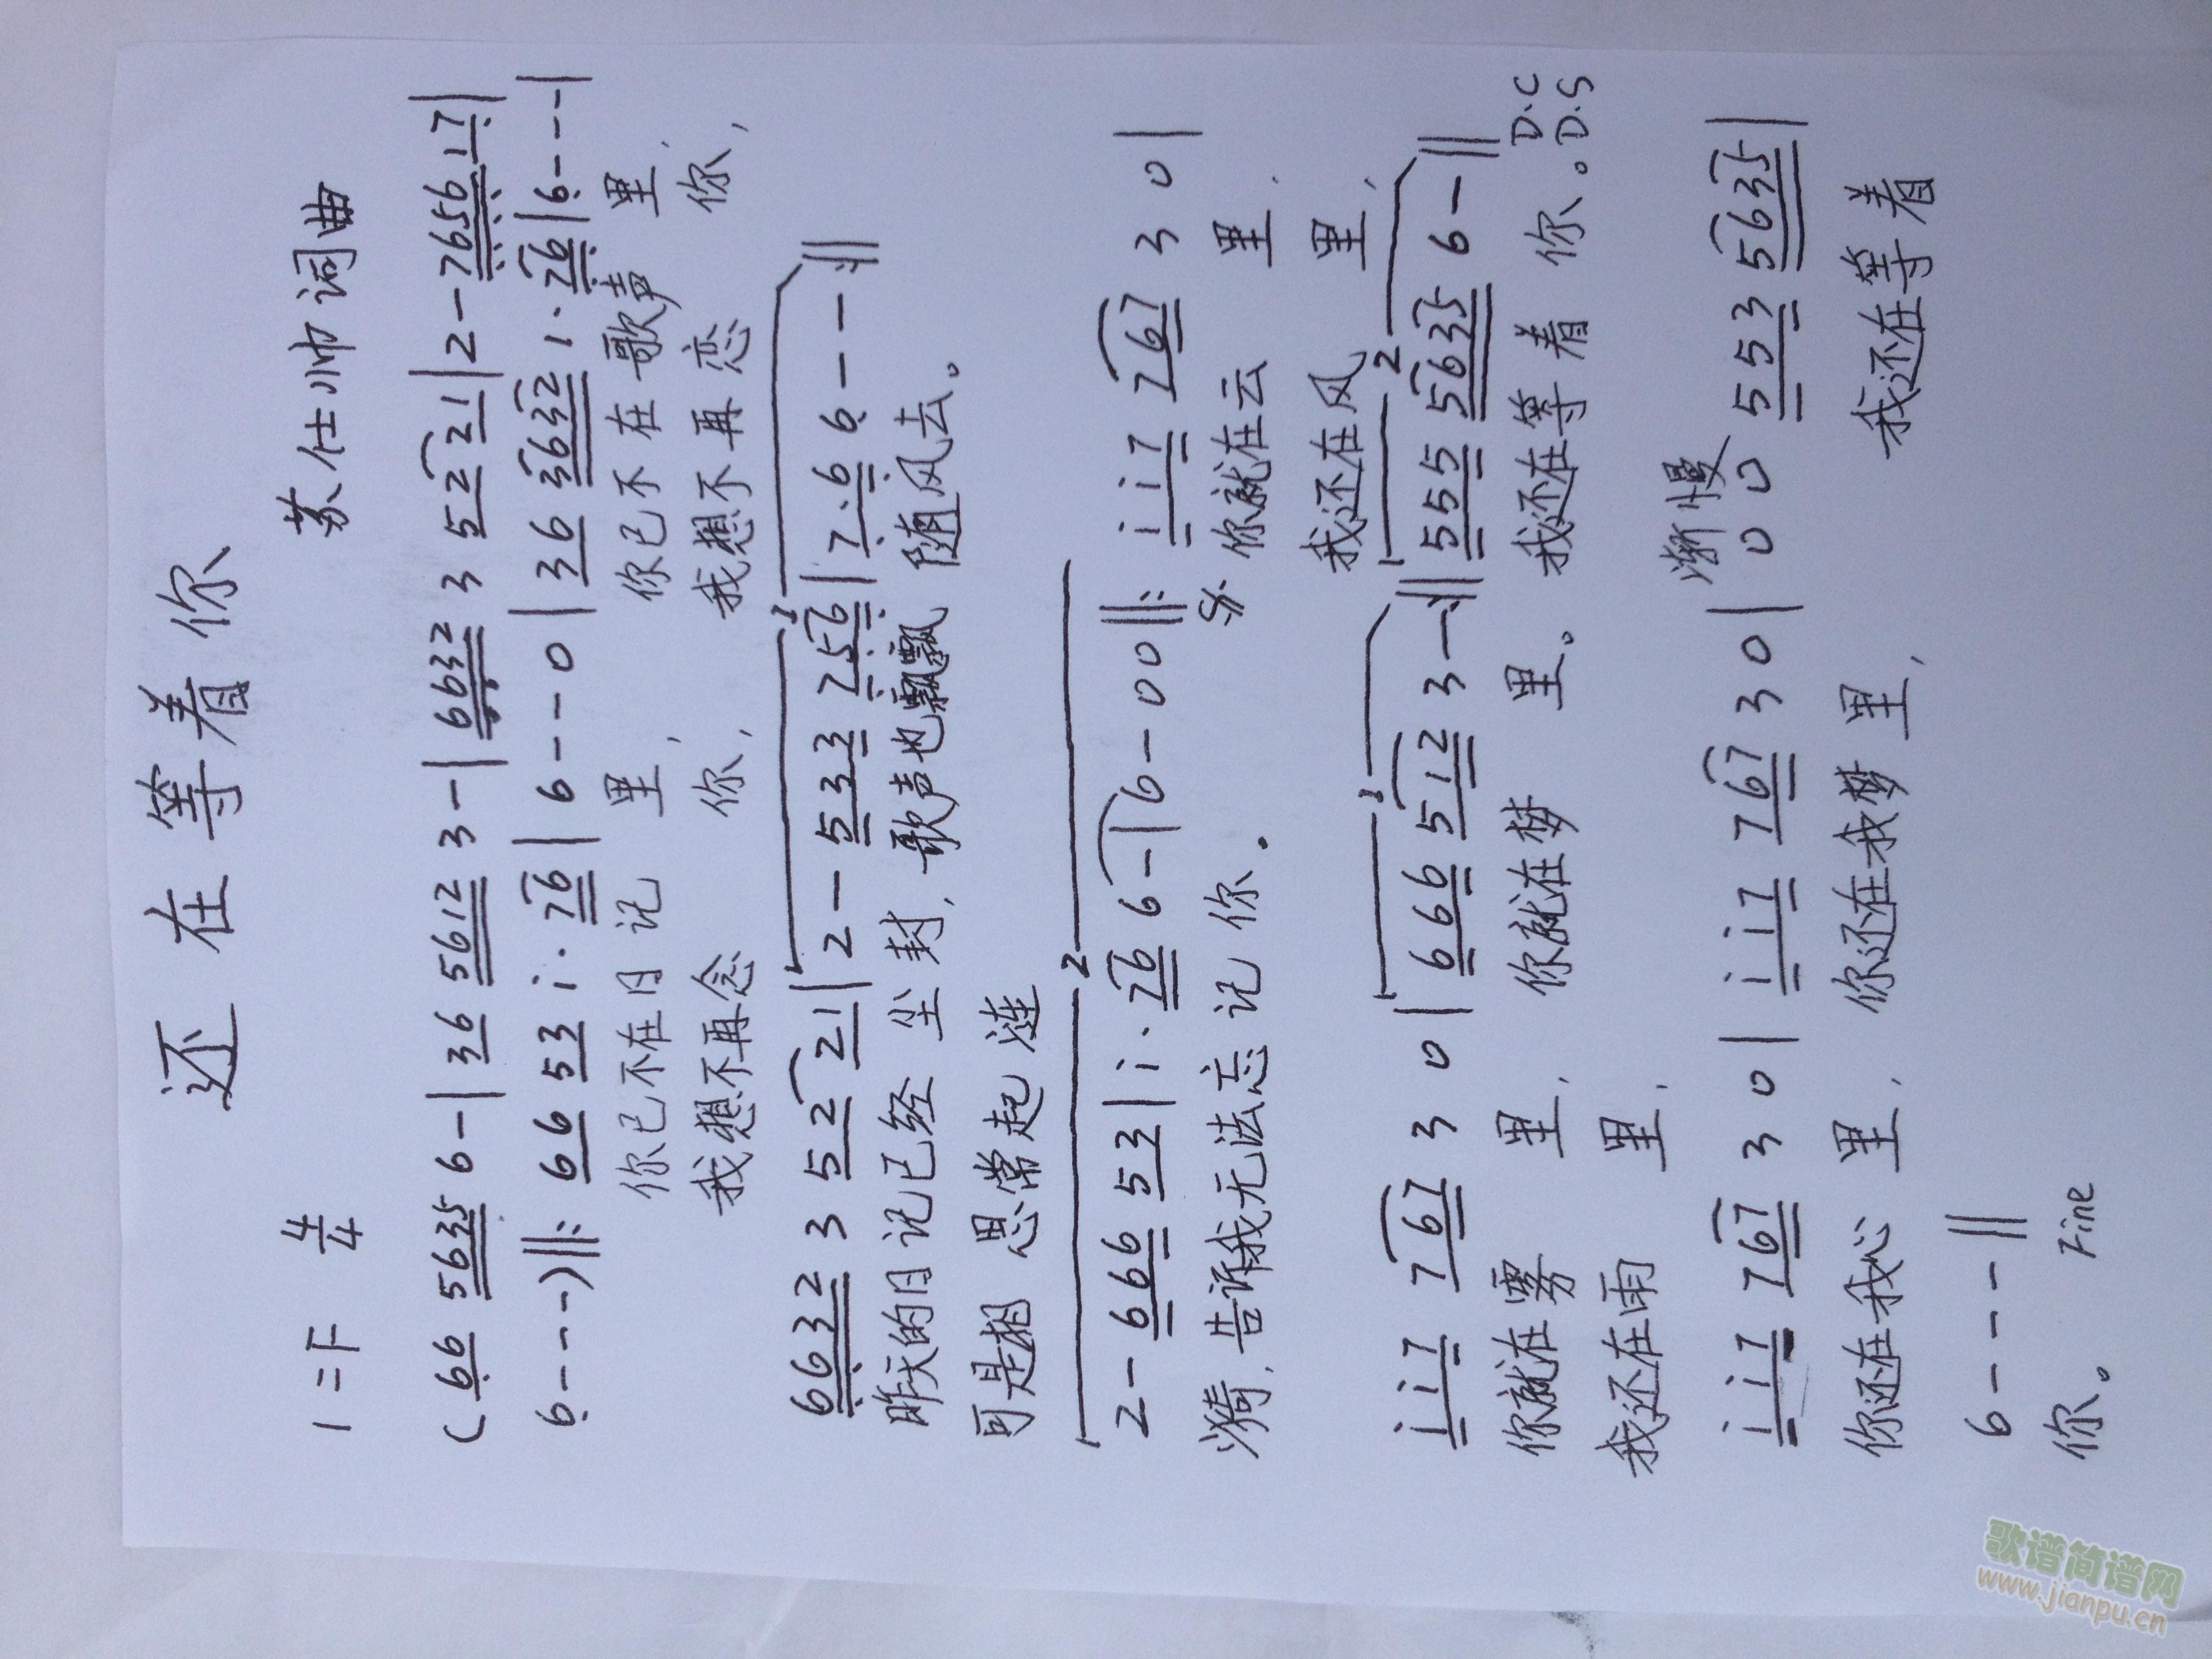 还在等着你
1=F 4/4 苏仕帅词曲
(66 5635 6-|36 5612 3-|6632 3 52 21|2-7656 17|
6---)‖: 66 53 i·76|6--0|36 3632 1·76|6---|
你已不在日记里,你已不在歌声里,
我想不再念你,我想不再恋你,
6632 3 52 21|2-533 256|7·6 6--:‖
昨天的日记已经尘封,歌声也飘飘随风去。
可是相思常起涟
2-666 53|i·76 6-|6-00‖: i i7 767 3 0|
漪,告诉我无法忘记你。 你就在云里,
我还在风里,
i i7 767 3 0|666 512 3-:‖555 5635 6-‖
你就在雾里,你就在梦里。我还在等着你。D.C
我还在雨里, D.S
渐慢
i i7 767 3 0|i i7 767 3 0|0 0 553 5635|
你还在我心里,你还在我梦里,我还在等着
6---‖
你。 Fine
歌谱简谱网
www.jianpu.cn